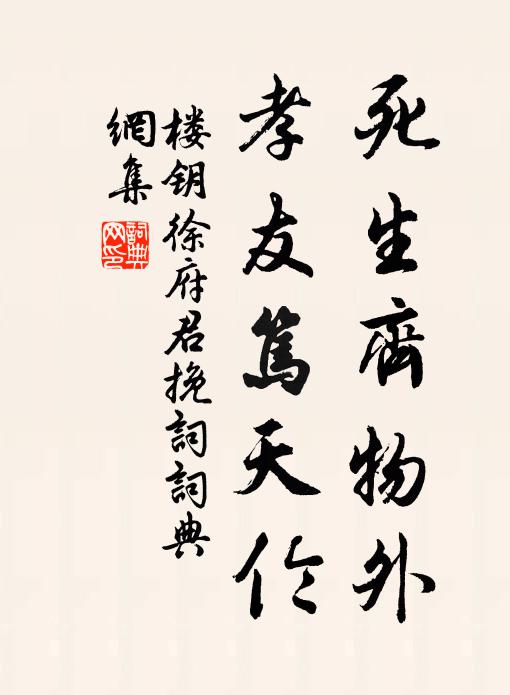 死生齊物外
孝友篤天伦
楼钥徐府君挽詞詞典
網集
詞典
网印